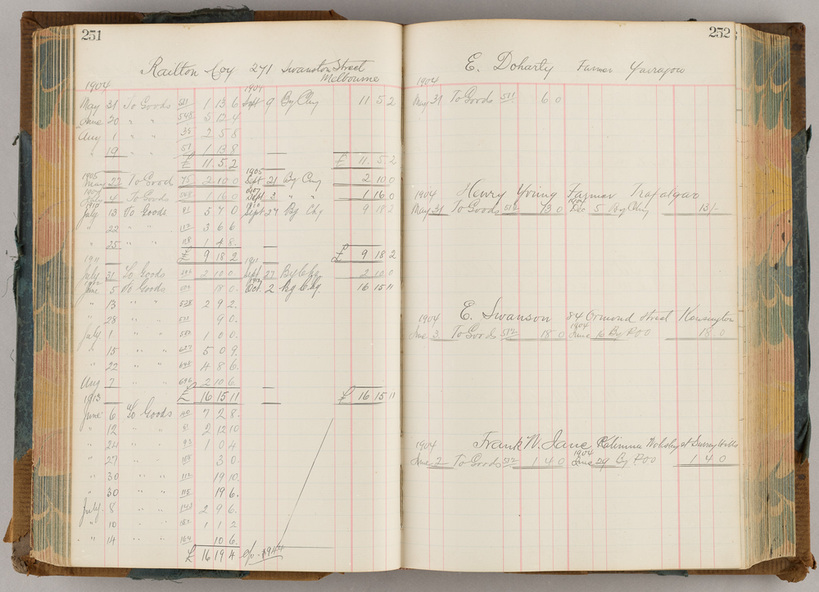 251
Railton Coy 271 Swanston Street
Melbourne
1904 1904
May 31 To Goods 1 13 6 Sept 9 By Chq 11 5 2
June 30 " " 545 5 12 4
Aug 1 " " 35 2 5 8
" 19 51 1 13 8
£ 11 5 2 £ 11 5 2
1905 1905
May 22 To Good 75 2 10 0 Sept 21 By Chq 2 10 0
1907 1907
4 To Goods 1 16 0 Sept 3 " " 1 16 0
July 13 To Goods 5 7 0 Sept 27 By Chq 9 18 2
" 22 " " 3 6 6
" 25 " " 1 4 8
£ 9 18 2 £ 9 18 2
July 31 To Goods 2 10 0 Sept 27 By Chq 2 10 0
June 5 To Goods 18 0 Oct 2 By Chq 16 15 11
" 13 " " 2 9 2
" 28 " " 9 0
July 1 " " 1 0 0
" 15 " " 5 0 9
" 22 " " 4 8 6
Aug 7 " " 2 10 6
£ 16 15 11 £ 16 15 11
1913
June 6 To Goods 7 2 8
" 12 " " 2 12 10
" 24 " " 1 0 4
" 27 " " 3 0
" 30 " " 19 10
" 30 " " 19 6
July 8 " " 2 9 6
" 10 " " 1 1 2
" 14 " " 10 6
£ 16 19 4
252
E. Doharty Farmer Yarragon
1904
May 31 To Goods 521 6 0
1904 Henry Young Farmer Trafalgar
May 31 To Goods 13 0 Dec 5 By Chq 13/-
1904 E. Swanson 84 Ormond Street Kensington
June 3 To Goods 522 18 0 1904 June 16 By POO 18 0
1904 Frank W. Jane Surrey Hills
June 2 To Goods 522 1 4 0 1904 June 24 By POO 1 4 0